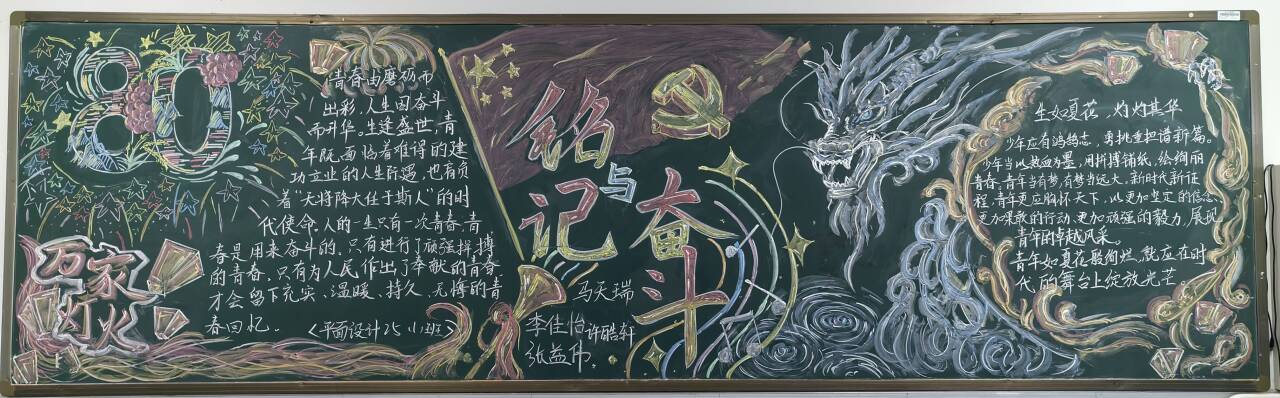 80
万家
灯火
青春由磨砺而
出彩,人生因奋斗
而升华。生逢盛世,青
年既面临着难得的建
功立业的人生际遇,也有负
着“天将降大任于斯人”的时
代使命.人的一生只有一次青春.青
春是用来奋斗的.只有进行了顽强拼搏
的青春.只有为人民作出了奉献的青春.
才会留下充实、温暖、持久、无悔的青
春回忆.
<平面设计25.小班>
铭
记
与
奋
斗
马天瑞
李佳怡 许酷轩
张益伟.
生如夏花,灼灼其华
少年应有鸿鹄志,勇挑重担谱新篇。
少年当以热血为墨,用拼搏铺纸,绘绚丽
青春.青年当有梦,有梦当远大。新时代新征
程,青年更应胸怀天下,以更加坚定的信念,
更加果敢的行动,更加顽强的毅力,展现
青年的卓越风采。
青年如夏花般绚烂,就应在时
代的舞台上绽放光芒